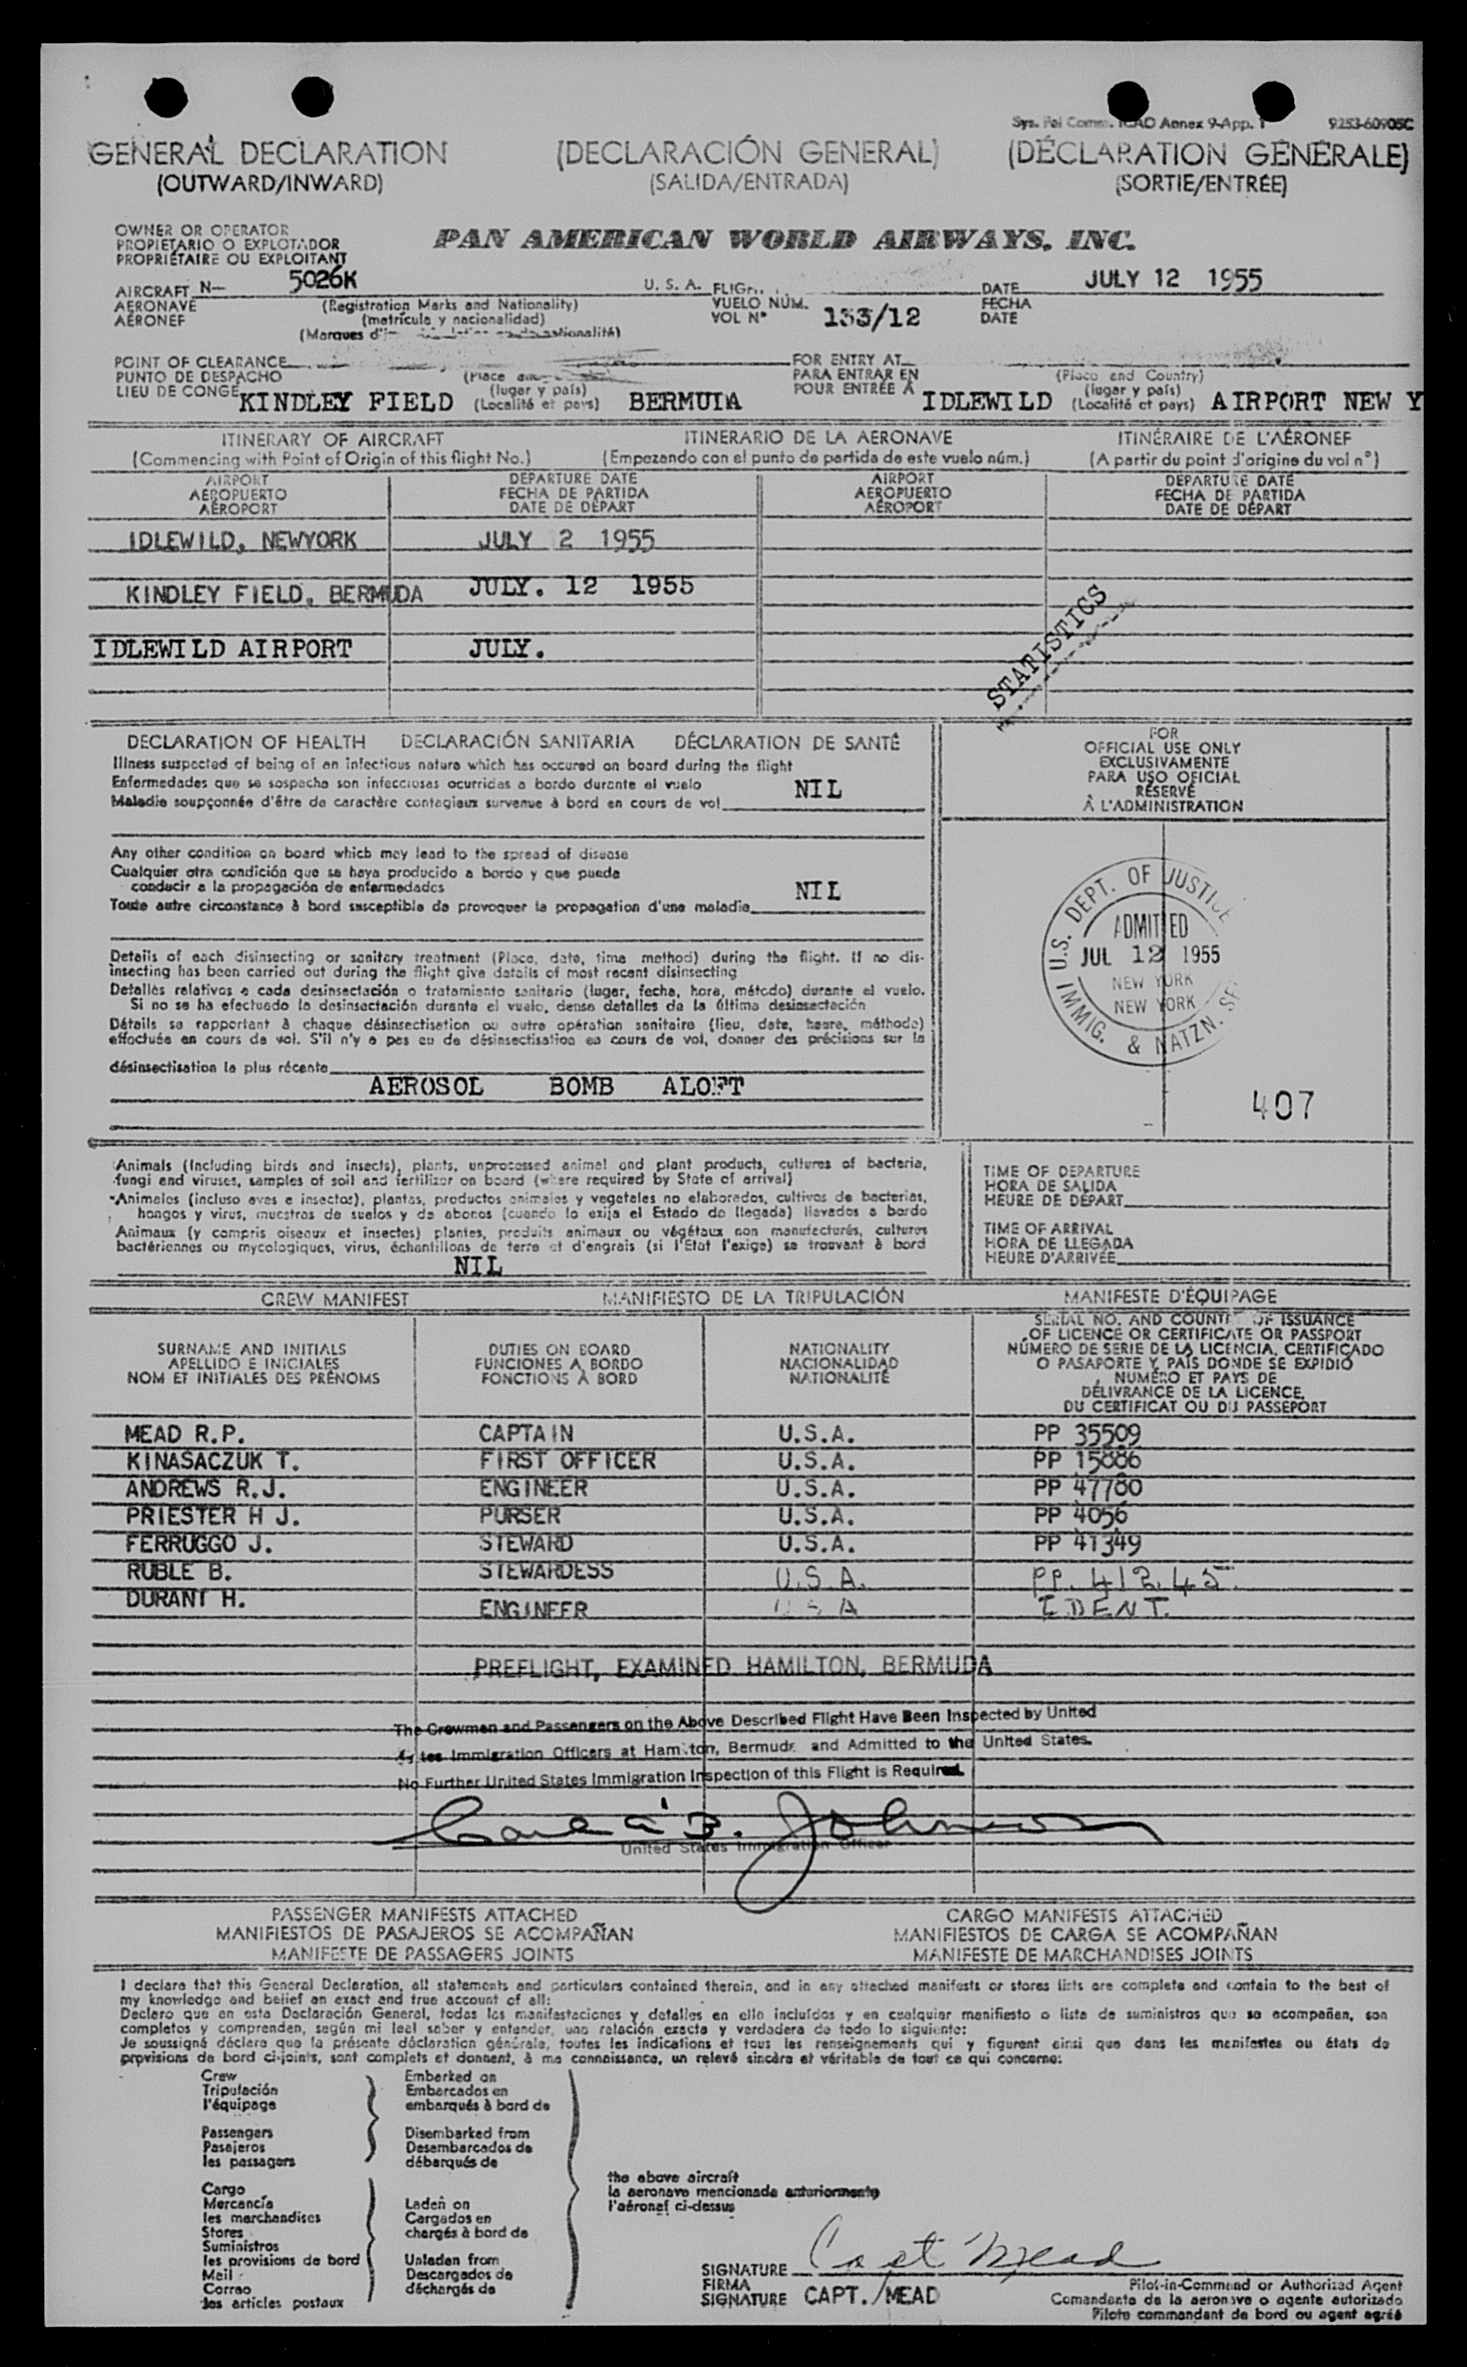 Annex 9-App. 1 9253-60905C
GENERAL DECLARATION (DECLARACIÓN GENERAL) (DÉCLARATION GÉNÉRALE)
(OUTWARD/INWARD) (SALIDA/ENTRADA) (SORTIE/ENTRÉE)
OWNER OR OPERATOR
PROPIETARIO O EXPLOTADOR
PROPRIÉTAIRE OU EXPLOITANT
PAN AMERICAN WORLD AIRWAYS, INC.
AIRCRAFT N— 5026K U. S. A. DATE JULY 12 1955
AERONAVE (Registration Marks and Nationality) VUELO NÚM. FECHA
AÉRONEF (matrícula y nacionalidad) VOL Nº 133/12 DATE
(Marques
POINT OF CLEARANCE FOR ENTRY AT
PUNTO DE DESPACHO (Place PARA ENTRAR EN (Place and Country)
LIEU DE CONGÉ KINDLEY FIELD (lugar y país) (Localité et pays) BERMUDA POUR ENTRÉE À IDLEWILD (lugar y país) (Localité et pays) AIRPORT NEW Y
ITINERARY OF AIRCRAFT ITINERARIO DE LA AERONAVE ITINÉRAIRE DE L'AÉRONEF
(Commencing with Point of Origin of this flight No.) (Empezando con el punto de partida de este vuelo núm.) (A partir du point d'origine du vol nº)
AIRPORT DEPARTURE DATE AIRPORT DEPARTURE DATE
AEROPUERTO FECHA DE PARTIDA AEROPUERTO FECHA DE PARTIDA
AÉROPORT DATE DE DÉPART AÉROPORT DATE DE DÉPART
IDLEWILD, NEWYORK JULY 2 1955
KINDLEY FIELD, BERMUDA JULY. 12 1955
IDLEWILD AIRPORT JULY.
STATISTICS
DECLARATION OF HEALTH DECLARACIÓN SANITARIA DÉCLARATION DE SANTÉ
Illness suspected of being of an infectious nature which has occured on board during the flight
Enfermedades que se sospecha son infecciosas ocurridas a bordo durante el vuelo NIL
Maladie soupçonnée d'être de caractère contagieux survenue à bord en cours de vol
Any other condition on board which may lead to the spread of disease
Cualquier otra condición que se haya producido a bordo y que pueda
conducir a la propagación de enfermedades NIL
Toute autre circonstance à bord susceptible de provoquer la propagation d'une maladie
Details of each disinsecting or sanitary treatment (Place, date, time method) during the flight. If no dis-
insecting has been carried out during the flight give details of most recent disinsecting
Detalles relativos a cada desinsectación o tratamiento sanitario (lugar, fecha, hora, método) durante el vuelo.
Si no se ha efectuado la desinsectación durante el vuelo, dense detalles de la última desinsectación
Détails se rapportant à chaque désinsectisation ou autre opération sanitaire (lieu, date, heure, méthode)
effectuée en cours de vol. S'il n'y a pas eu de désinsectisation en cours de vol, donner des précisions sur la
désinsectisation la plus récente
AEROSOL BOMB ALOFT
FOR
OFFICIAL USE ONLY
EXCLUSIVAMENTE
PARA USO OFICIAL
RÉSERVÉ
À L'ADMINISTRATION
U.S. DEPT. OF JUSTICE
ADMITTED
JUL 12 1955
NEW YORK
NEW YORK
IMMIG. & NATZN. SE
407
Animals (Including birds and insects), plants, unprocessed animal and plant products, cultures of bacteria,
fungi and viruses, samples of soil and fertilizer on board (where required by State of arrival)
Animales (incluso aves e insectos), plantas, productos animales y vegetales no elaborados, cultivos de bacterias,
hongos y virus, muestras de suelos y de abonos (cuando lo exija el Estado de llegada) llevados a bordo
Animaux (y compris oiseaux et insectes) plantes, produits animaux ou végétaux non manufacturés, cultures
bactériennes ou mycologiques, virus, échantillons de terre et d'engrais (si l'État l'exige) se trouvant à bord
NIL
TIME OF DEPARTURE
HORA DE SALIDA
HEURE DE DÉPART
TIME OF ARRIVAL
HORA DE LLEGADA
HEURE D'ARRIVÉE
CREW MANIFEST MANIFIESTO DE LA TRIPULACIÓN MANIFESTE D'ÉQUIPAGE
SURNAME AND INITIALS DUTIES ON BOARD NATIONALITY
APELLIDO E INICIALES FUNCIONES A BORDO NACIONALIDAD
NOM ET INITIALES DES PRÉNOMS FONCTIONS À BORD NATIONALITÉ
SERIAL NO. AND COUNTRY OF ISSUANCE
OF LICENCE OR CERTIFICATE OR PASSPORT
NÚMERO DE SERIE DE LA LICENCIA, CERTIFICADO
O PASAPORTE Y PAÍS DONDE SE EXPIDIÓ
NUMÉRO ET PAYS DE
DÉLIVRANCE DE LA LICENCE,
DU CERTIFICAT OU DU PASSEPORT
MEAD R.P. CAPTAIN U.S.A. PP 35509
KINASACZUK T. FIRST OFFICER U.S.A. PP 15886
ANDREWS R.J. ENGINEER U.S.A. PP 47780
PRIESTER H J. PURSER U.S.A. PP 4056
FERRUGGO J. STEWARD U.S.A. PP 41349
RUBLE B. STEWARDESS U.S.A. PP. 41245
DURANT H. ENGINEER USA IDENT.
PREFLIGHT, EXAMINED HAMILTON, BERMUDA
The Crewmen and Passengers on the Above Described Flight Have Been Inspected by United
States Immigration Officers at Hamilton, Bermuda and Admitted to the United States.
No Further United States Immigration Inspection of this Flight is Required.
B. Johnson
United States Immigration Officer
PASSENGER MANIFESTS ATTACHED CARGO MANIFESTS ATTACHED
MANIFIESTOS DE PASAJEROS SE ACOMPAÑAN MANIFIESTOS DE CARGA SE ACOMPAÑAN
MANIFESTE DE PASSAGERS JOINTS MANIFESTE DE MARCHANDISES JOINTS
I declare that this General Declaration, all statements and particulars contained therein, and in any attached manifests or stores lists are complete and contain to the best of
my knowledge and belief an exact and true account of all:
Declaro que en esta Declaración General, todas las manifestaciones y detalles en ella incluídos y en cualquier manifiesto o lista de suministros que se acompañan, son
completos y comprenden, según mi leal saber y entender, una relación exacta y verdadera de todo lo siguiente:
Je soussigné déclare que la présente déclaration générale, toutes les indications et tous les renseignements qui y figurent ainsi que dans les manifestes ou états de
provisions de bord ci-joints, sont complets et donnent, à ma connaissance, un relevé sincère et véritable de tout ce qui concerne:
Crew Embarked on
Tripulación Embarcados en
l'équipage embarqués à bord de
Passengers Disembarked from
Pasajeros Desembarcados de
les passagers débarqués de
the above aircraft
la aeronave mencionada anteriormente
l'aéronef ci-dessus
Cargo
Mercancía Laden on
les marchandises Cargados en
Stores chargés à bord de
Suministros
les provisions de bord Unladen from
Mail Descargados de
Correo déchargés de
les articles postaux
SIGNATURE Capt Mead
FIRMA
SIGNATURE CAPT. MEAD
Pilot-in-Command or Authorized Agent
Comandante de la aeronave o agente autorizado
Pilote commandant de bord ou agent agréé